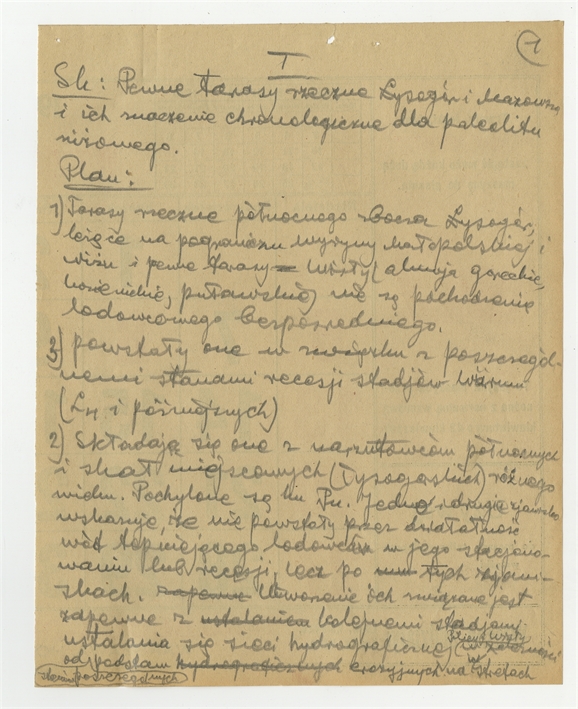 1
I
Sk: Pewne tarasy rzeczne Łysogór i Mazowsza
i ich znaczenie chronologiczne dla paleolitu
niżowego.
Plan:
1) Tarasy rzeczne północnego zbocza Łysogór,
leżące na pograniczu wyżyny małopolskiej i
niżu i pewne tarasy Wisły (góreckie,
puławskie) nie są pochodzenia
lodowcowego bezpośredniego.
3) powstały one w związku z poszczegól-
nemi stanami recesji stadjów Würmu
(L4 i późniejszych)
2) Składają się one z narzutowców północnych
i skał miejscowych (łysogórskich) różnego
wieku. Pochylone są ku Pn. Jedno i drugie zjawisko
wskazuje, że nie powstały przez działalność
wód topniejącego lodowca w jego stacjono-
waniu lub recesji, lecz po tych zjawi-
skach. zapewne Utworzenie ich związane jest
zapewne z ustalaniem kolejnemi stadjami
ustalania się sieci hydrograficznej w zależności
od podstaw hydrograficznych erozyjnych na
poszczególnych